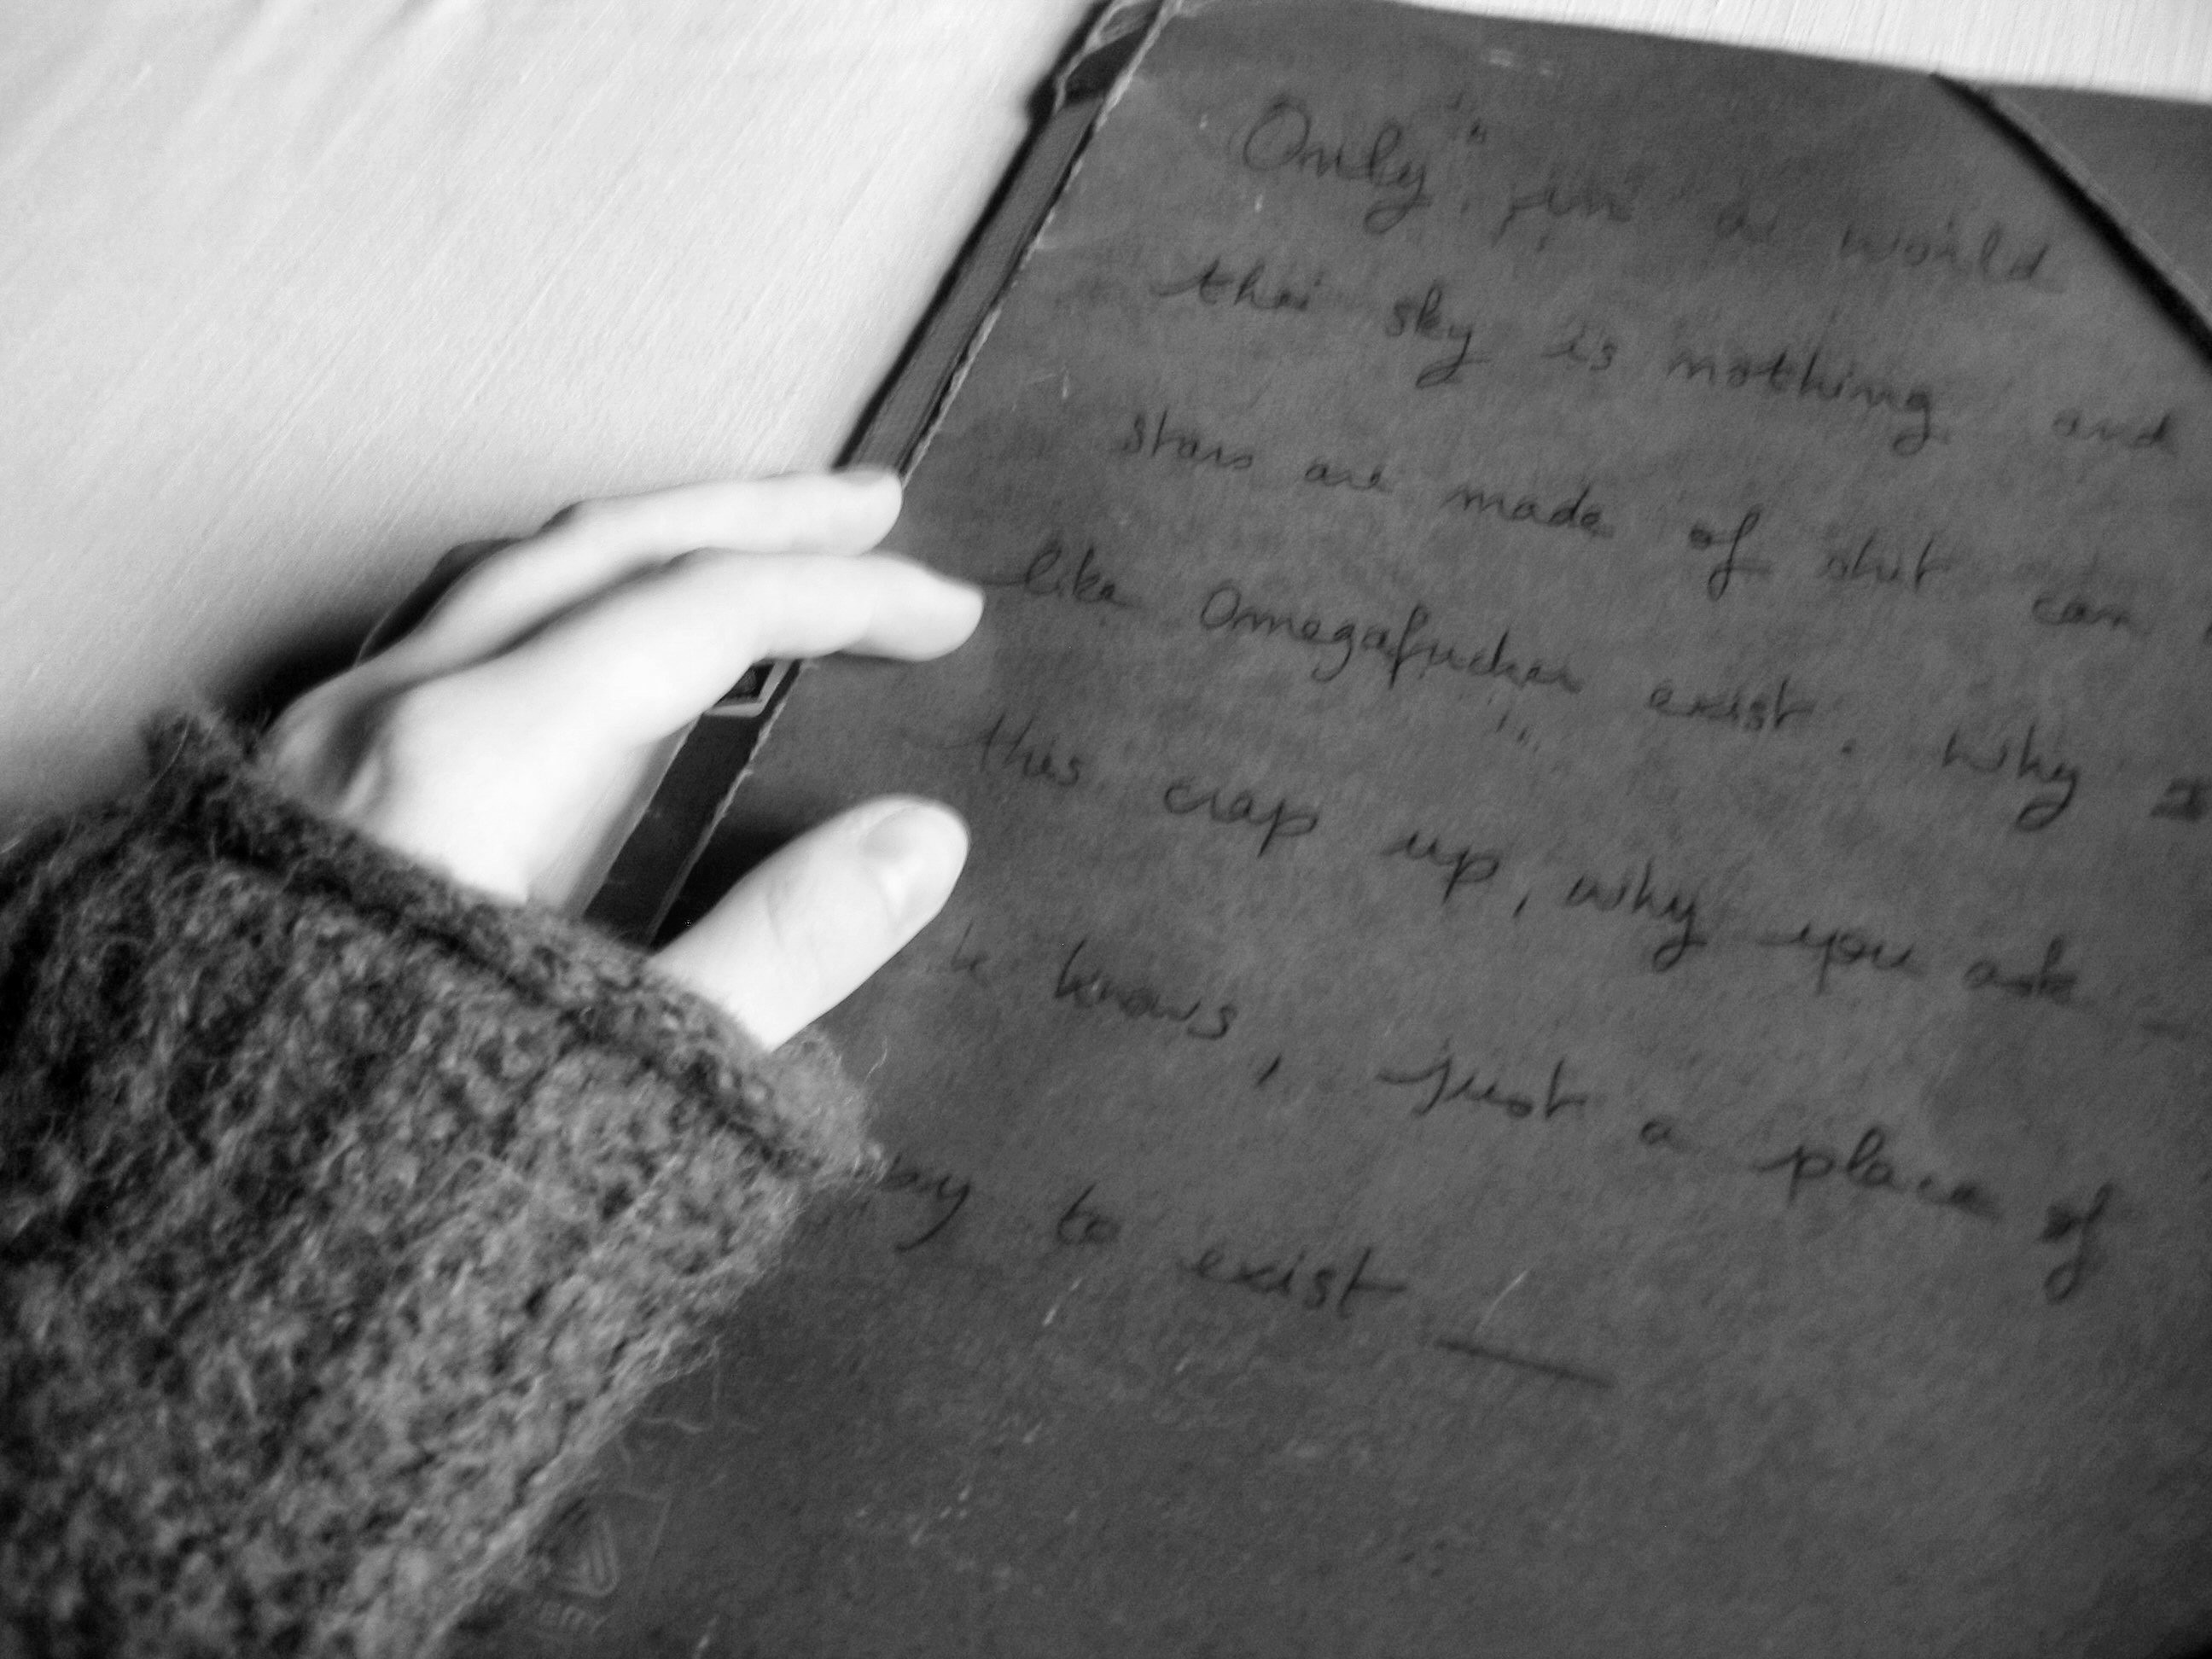 Only in a world
thei sky is nothing and
stars are made of shit can
like Omegafucker exist. Why I
this crap up, why you ask
knows, just a place of
to exist